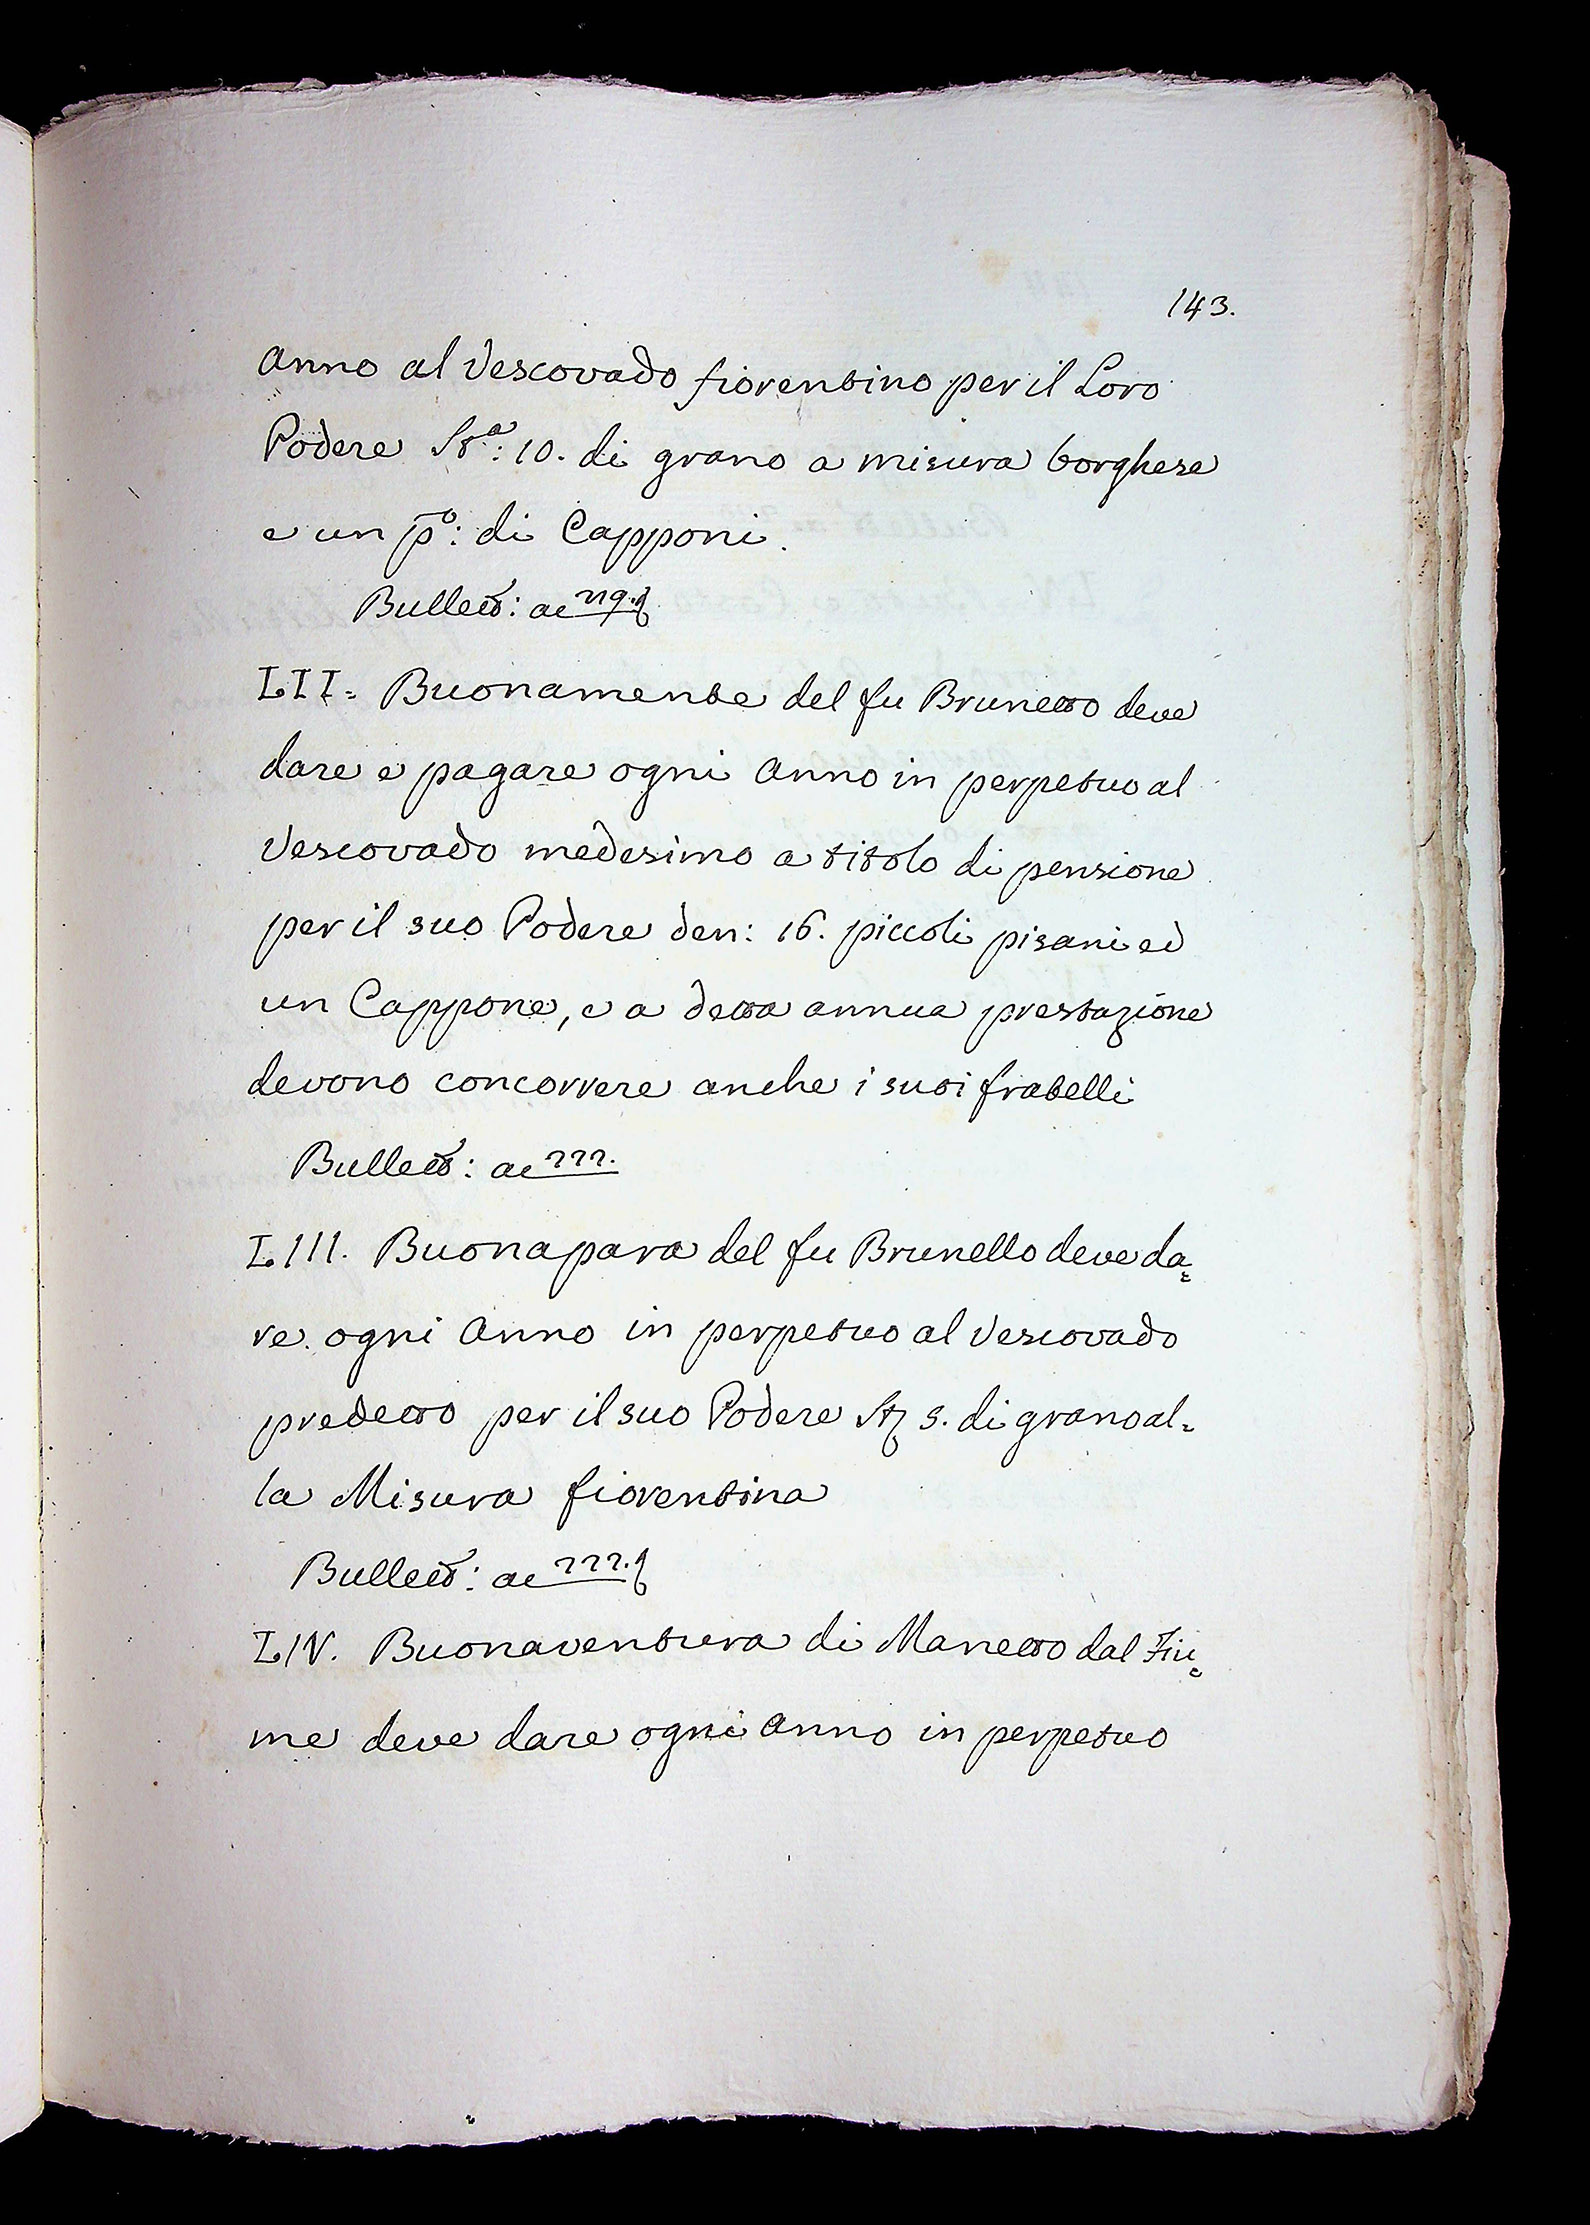 143.
Anno al Vescovado fiorentino per il Loro
Podere Stª: 10. di grano a misura borghese
e un pº: di Capponi.
Bullett: ac 219.
LII= Buonamente del fu Brunetto deve
dare e pagare ogni Anno in perpetuo al
Vescovado medesimo a titolo di pensione
per il suo Podere den: 16. piccoli pisani ed
un Cappone, e a detta annua prestazione
devono concorrere anche i suoi fratelli
Bullett: ac 222.
LIII. Buonapara del fu Brunello deve da=
re ogni Anno in perpetuo al Vescovado
predetto per il suo Podere St 5. di grano al=
la Misura fiorentina
Bullett: ac 222.
LIV. Buonaventura di Manetto dal Fiu=
me deve dare ogni Anno in perpetuo